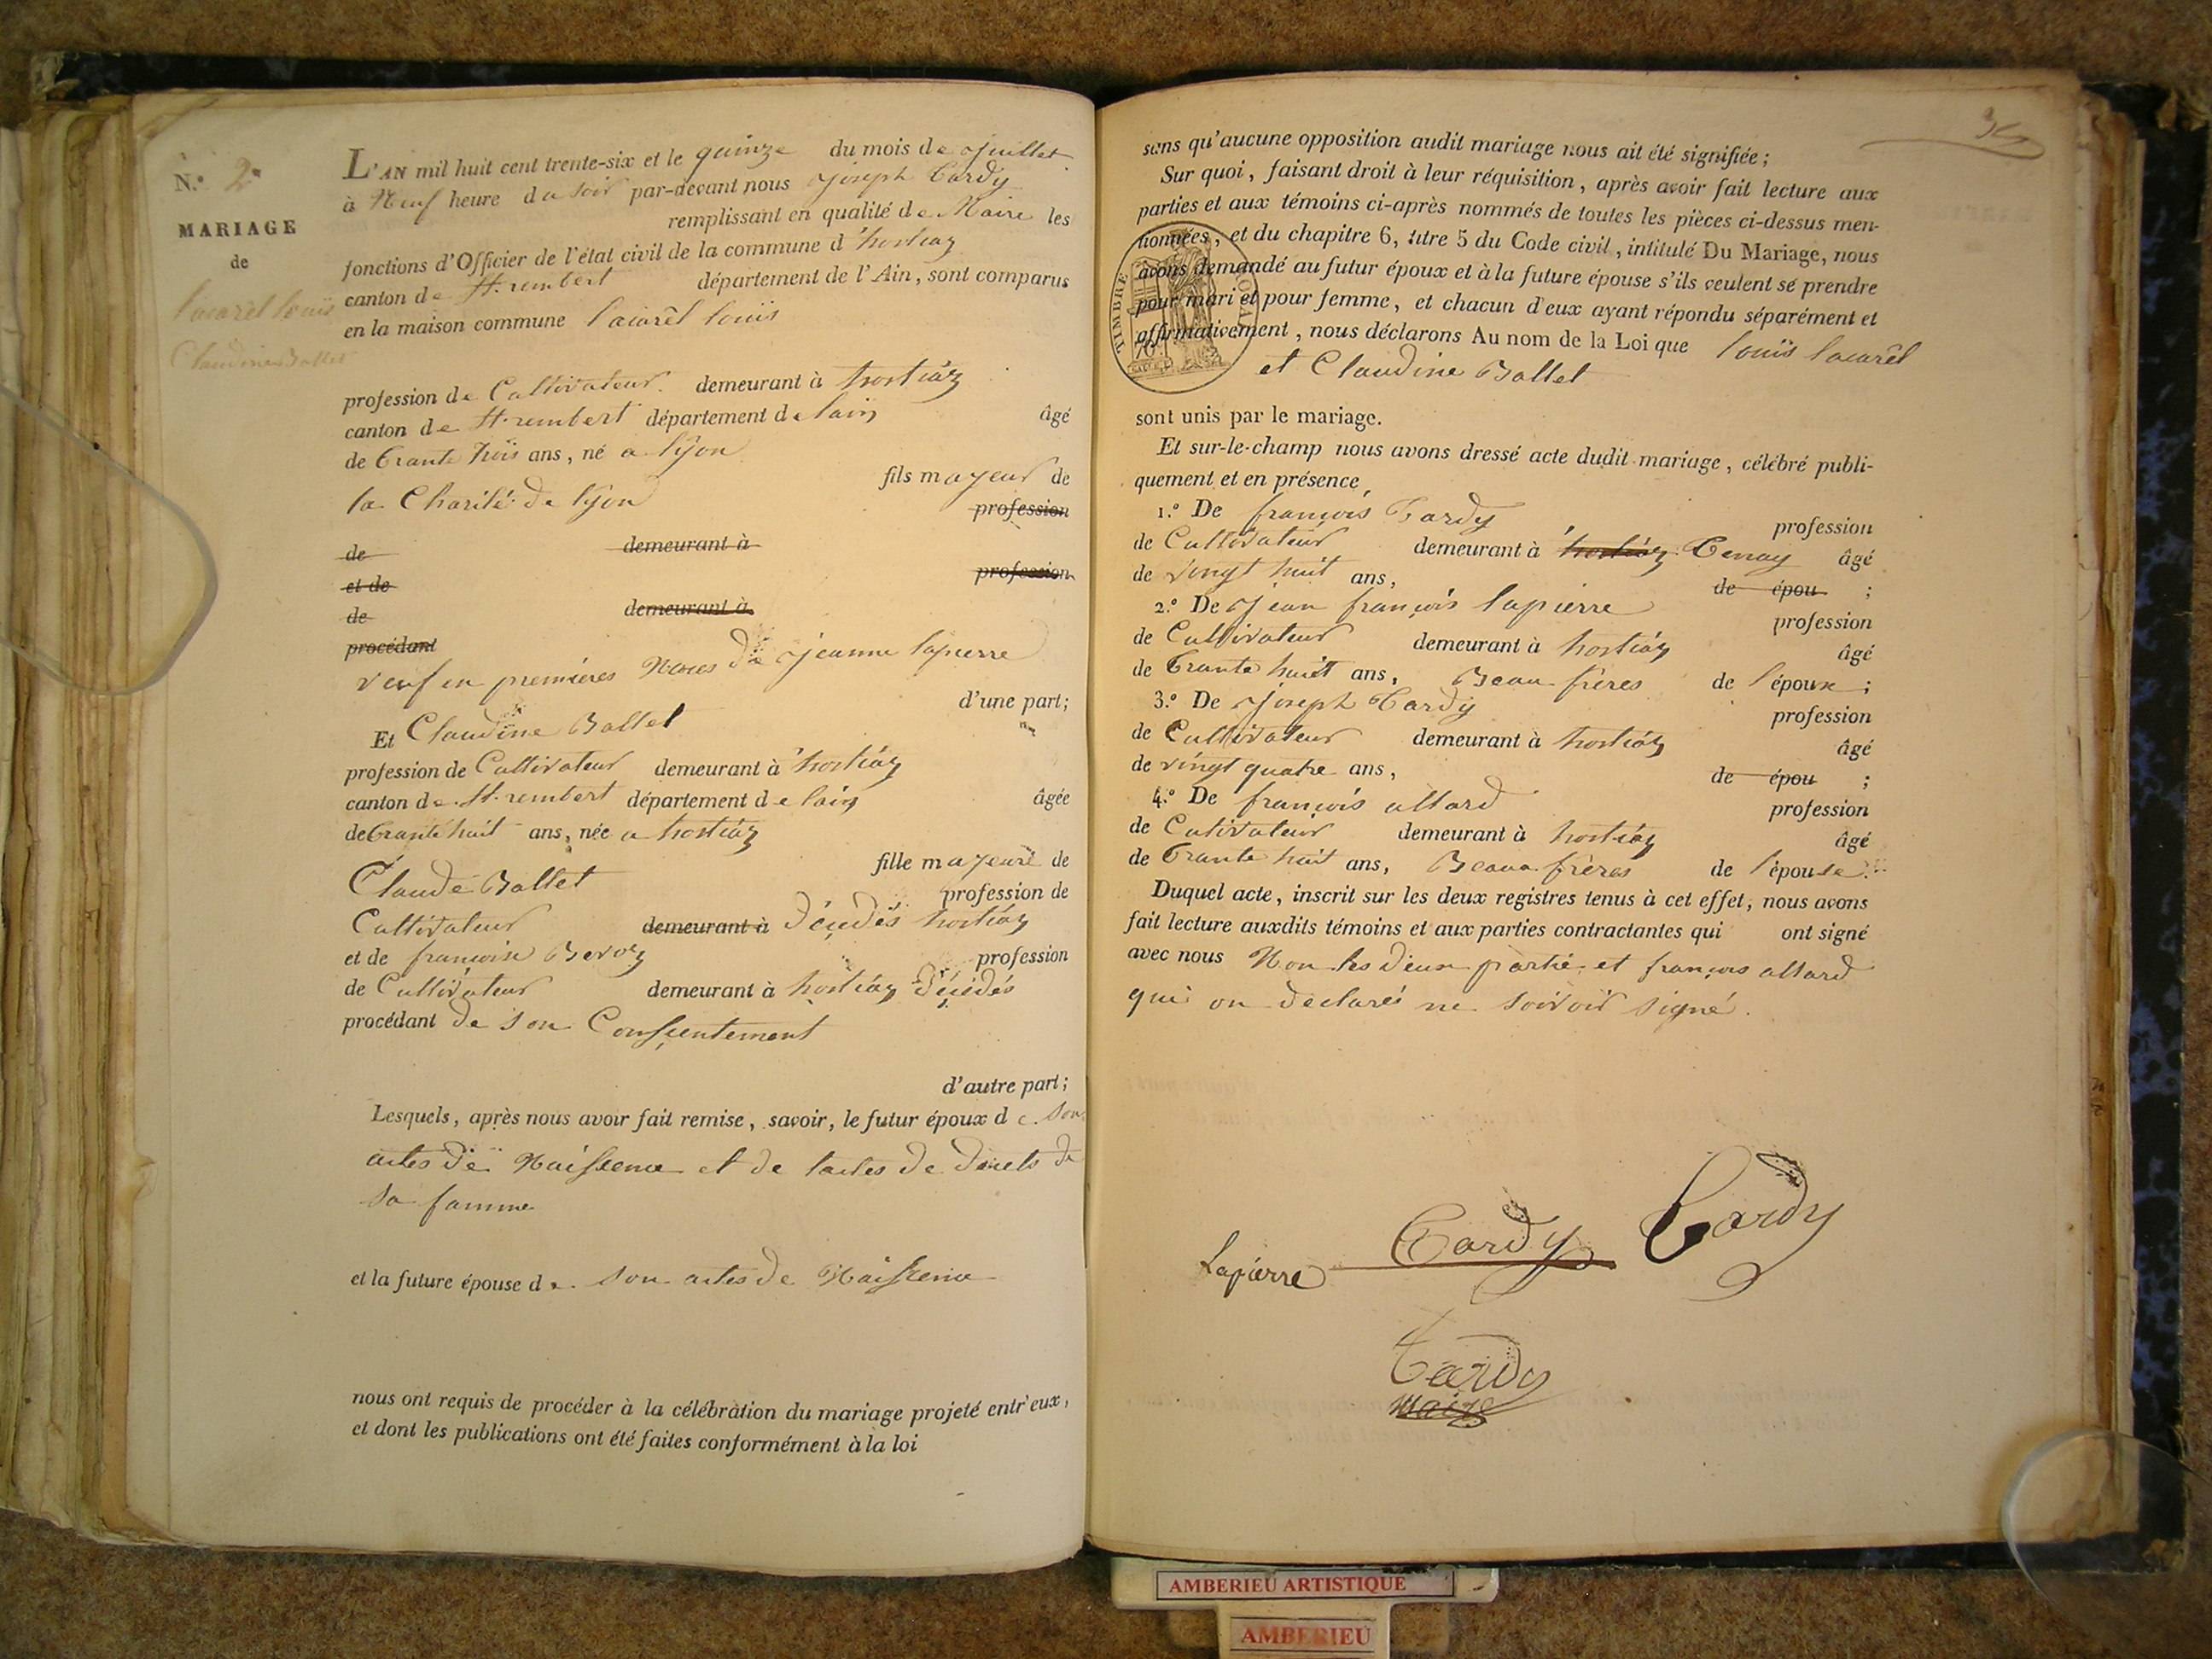 N.º 2e
MARIAGE
de
lacarêl louïs
Claudine Ballet
L'AN mil huit cent trente-six et le quinze du mois de Juillet
à Neuf heure du soir par-devant nous Joseph Tardy
remplissant en qualité de Maire les
fonctions d'Officier de l'état civil de la commune d'hostiaz
canton de St. rembert département de l'Ain, sont comparus
en la maison commune lacarêl louïs
profession de Cultivateur demeurant à hostiáz
canton de St. rembert département de lain âgé
de trante trois ans, né a lyon
fils mayeur de
la Charité de lyon
profession
de demeurant à
et de profession
de demeurant à
procédant
veuf en premières Noces de Jeanne lapierre
d'une part;
Et Claudine Ballet
profession de Cultivateur demeurant à hostiáz
canton de St. rembert département de lain âgée
de trante huit ans, née a hostiáz
fille mayeure de
Claude Ballet
profession de
Cultivateur demeurant à décédés hostiáz
et de francoise Beroz profession
de Cultivateur demeurant à hostiáz décédés
procédant de son Consçentement
d'autre part;
Lesquels, après nous avoir fait remise, savoir, le futur époux de son
actes de Naissence et de lactes de décets de
sa famme
et la future épouse de son actes de Naissence
nous ont requis de procéder à la célébration du mariage projeté entr'eux,
et dont les publications ont été faites conformément à la loi
sans qu'aucune opposition audit mariage nous ait été signifiée;
Sur quoi, faisant droit à leur réquisition, après avoir fait lecture aux
parties et aux témoins ci-après nommés de toutes les pièces ci-dessus men-
tionnées, et du chapitre 6, titre 5 du Code civil, intitulé Du Mariage, nous
avons demandé au futur époux et à la future épouse s'ils veulent se prendre
pour mari et pour femme, et chacun d'eux ayant répondu séparément et
affirmativement, nous déclarons Au nom de la Loi que louïs lacarêl
et Claudine Ballet
TIMBRE ROYAL
sont unis par le mariage.
Et sur-le-champ nous avons dressé acte dudit mariage, célébré publi-
quement et en présence,
1.º De françois Tardy profession
de Cultivateur demeurant à hostiáz Tenay âgé
de vingt huit ans, de épou ;
2.º De Jean françois lapierre profession
de Cultivateur demeurant à hostiáz âgé
de trante huit ans, Beau frères de l'époux ;
3.º De Joseph Tardy profession
de Cultivateur demeurant à hostiáz âgé
de vingt quatre ans, de épou ;
4.º De françois allard profession
de Cutivateur demeurant à hostiáz âgé
de trante huit ans, Beaux frères de l'épouse.
Duquel acte, inscrit sur les deux registres tenus à cet effet, nous avons
fait lecture auxdits témoins et aux parties contractantes qui ont signé
avec nous Non les deux partie et françois allard
qui on déclarés ne savoir signé.
Lapierre Tardy Tardy
Tardy
Maire
AMBERIEU ARTISTIQUE
AMBERIEU